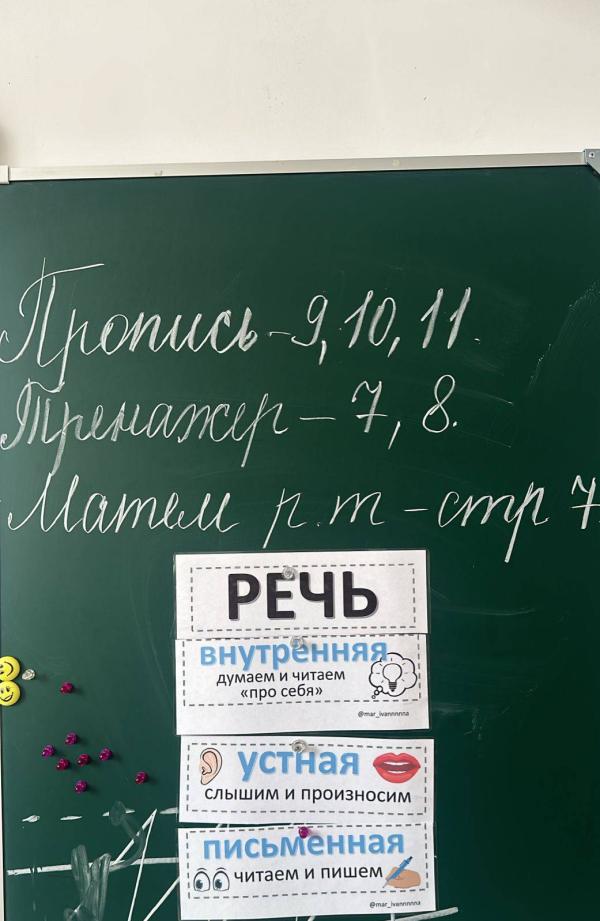 Пропись - 9, 10, 11.
Тренажер - 7, 8.
Матем р.т - стр 7.
РЕЧЬ
внутренняя
думаем и читаем
«про себя»
@mar_ivannnnna
устная
слышим и произносим
письменная
читаем и пишем
@mar_ivannnnna